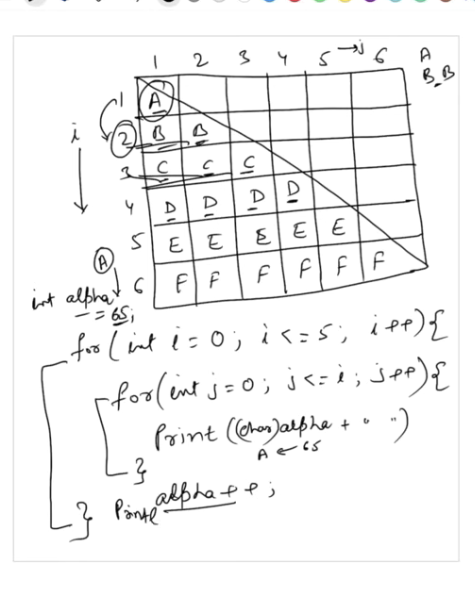 1 2 3 4 5 →j 6 A
B B
i
1 A
2 B B
3 C C C
4 D D D D
5 E E E E E
A
6 F F F F F F
int alpha
= 65;
for (int i = 0; i <= 5; i++) {
for (int j = 0; j <= i; j++) {
Print ((char)alpha + " ")
A ← 65
}
alpha++;
} Println